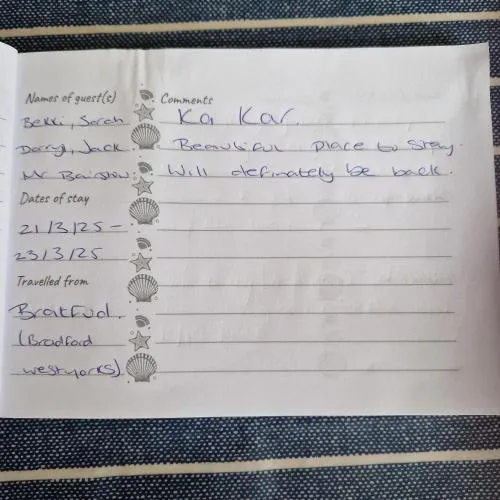 Names of guest(s)
Bekki, Sarah
Darryl, Jack
Mr Bairstow.
Dates of stay
21/3/25 -
23/3/25
Travelled from
Bratfud.
(Bradford
westyorks)
Comments
Ka Kar.
Beautiful place to stay.
Will definately be back.